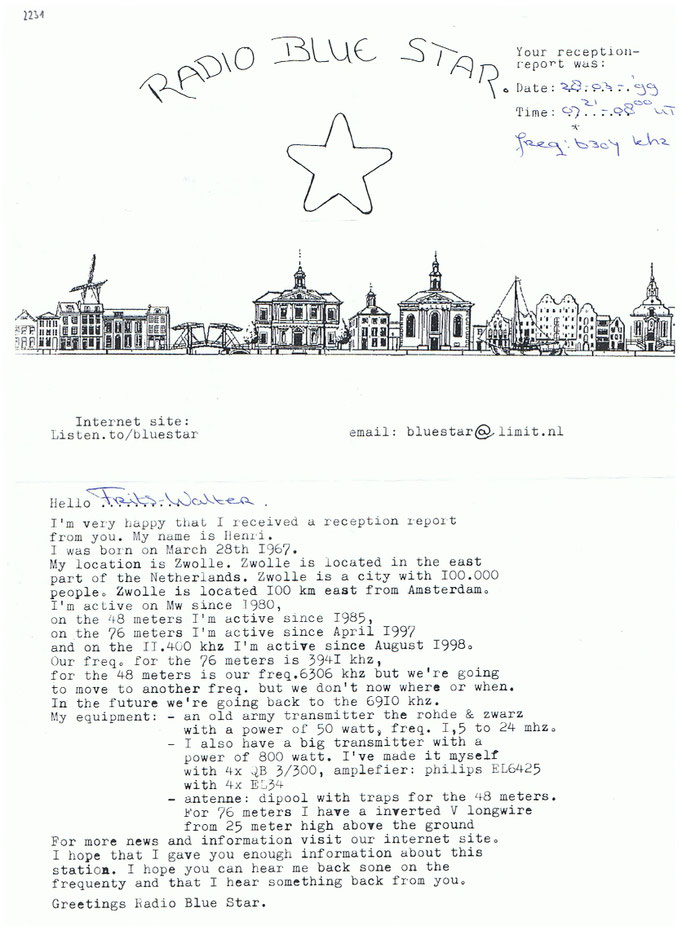 2231
RADIO BLUE STAR.
Your reception-
report was:
Date: 28-03-'99
Time: 07²¹-08⁰⁰ UT
*
freq: 6304 khz
Internet site:
Listen.to/bluestar
email: bluestar@limit.nl
Hello Frits-Walter.
I'm very happy that I received a reception report
from you. My name is Henri.
I was born on March 28th I967.
My location is Zwolle. Zwolle is located in the east
part of the Netherlands. Zwolle is a city with I00.000
people. Zwolle is located I00 km east from Amsterdam.
I'm active on Mw since I980,
on the 48 meters I'm active since I985,
on the 76 meters I'm active since April I997
and on the II.400 khz I'm active since August I998.
Our freq. for the 76 meters is 394I khz,
for the 48 meters is our freq.6306 khz but we're going
to move to another freq. but we don't now where or when.
In the future we're going back to the 69I0 khz.
My equipment: - an old army transmitter the rohde & zwarz
with a power of 50 watt, freq. I,5 to 24 mhz.
- I also have a big transmitter with a
power of 800 watt. I've made it myself
with 4x QB 3/300, amplefier: philips EL6425
with 4x EL34
- antenne: dipool with traps for the 48 meters.
For 76 meters I have a inverted V longwire
from 25 meter high above the ground
For more news and information visit our internet site.
I hope that I gave you enough information about this
station. I hope you can hear me back sone on the
frequenty and that I hear something back from you.
Greetings Radio Blue Star.